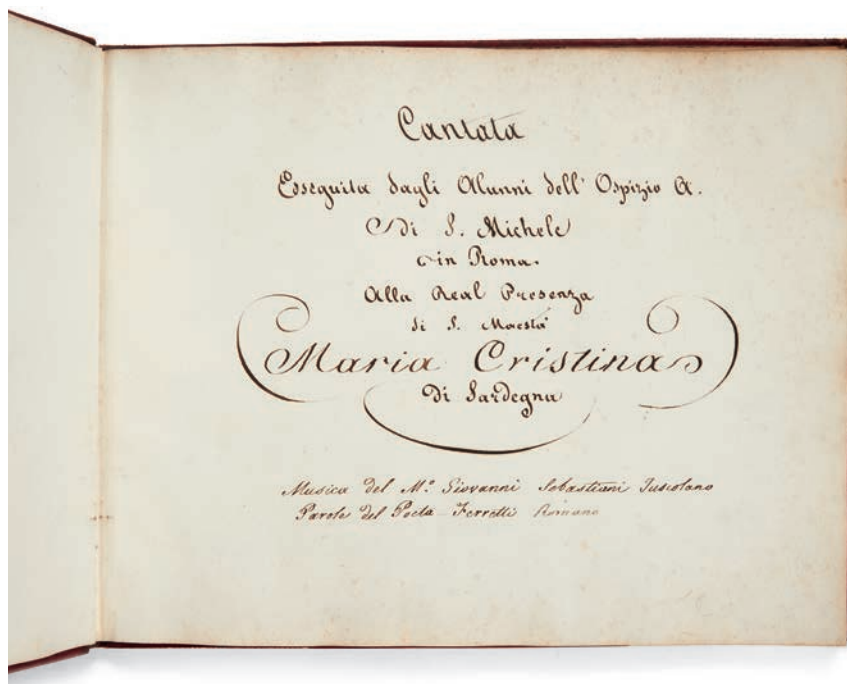 Cantata
Esseguita dagli Alunni dell' Ospizio A.
di S. Michele
in Roma
Alla Real Presenza
di S. Maestà
Maria Cristina
Di Sardegna
Musica del M.o Giovanni Sebastiani Tuscolano
Parole del Poeta Ferretti Romano